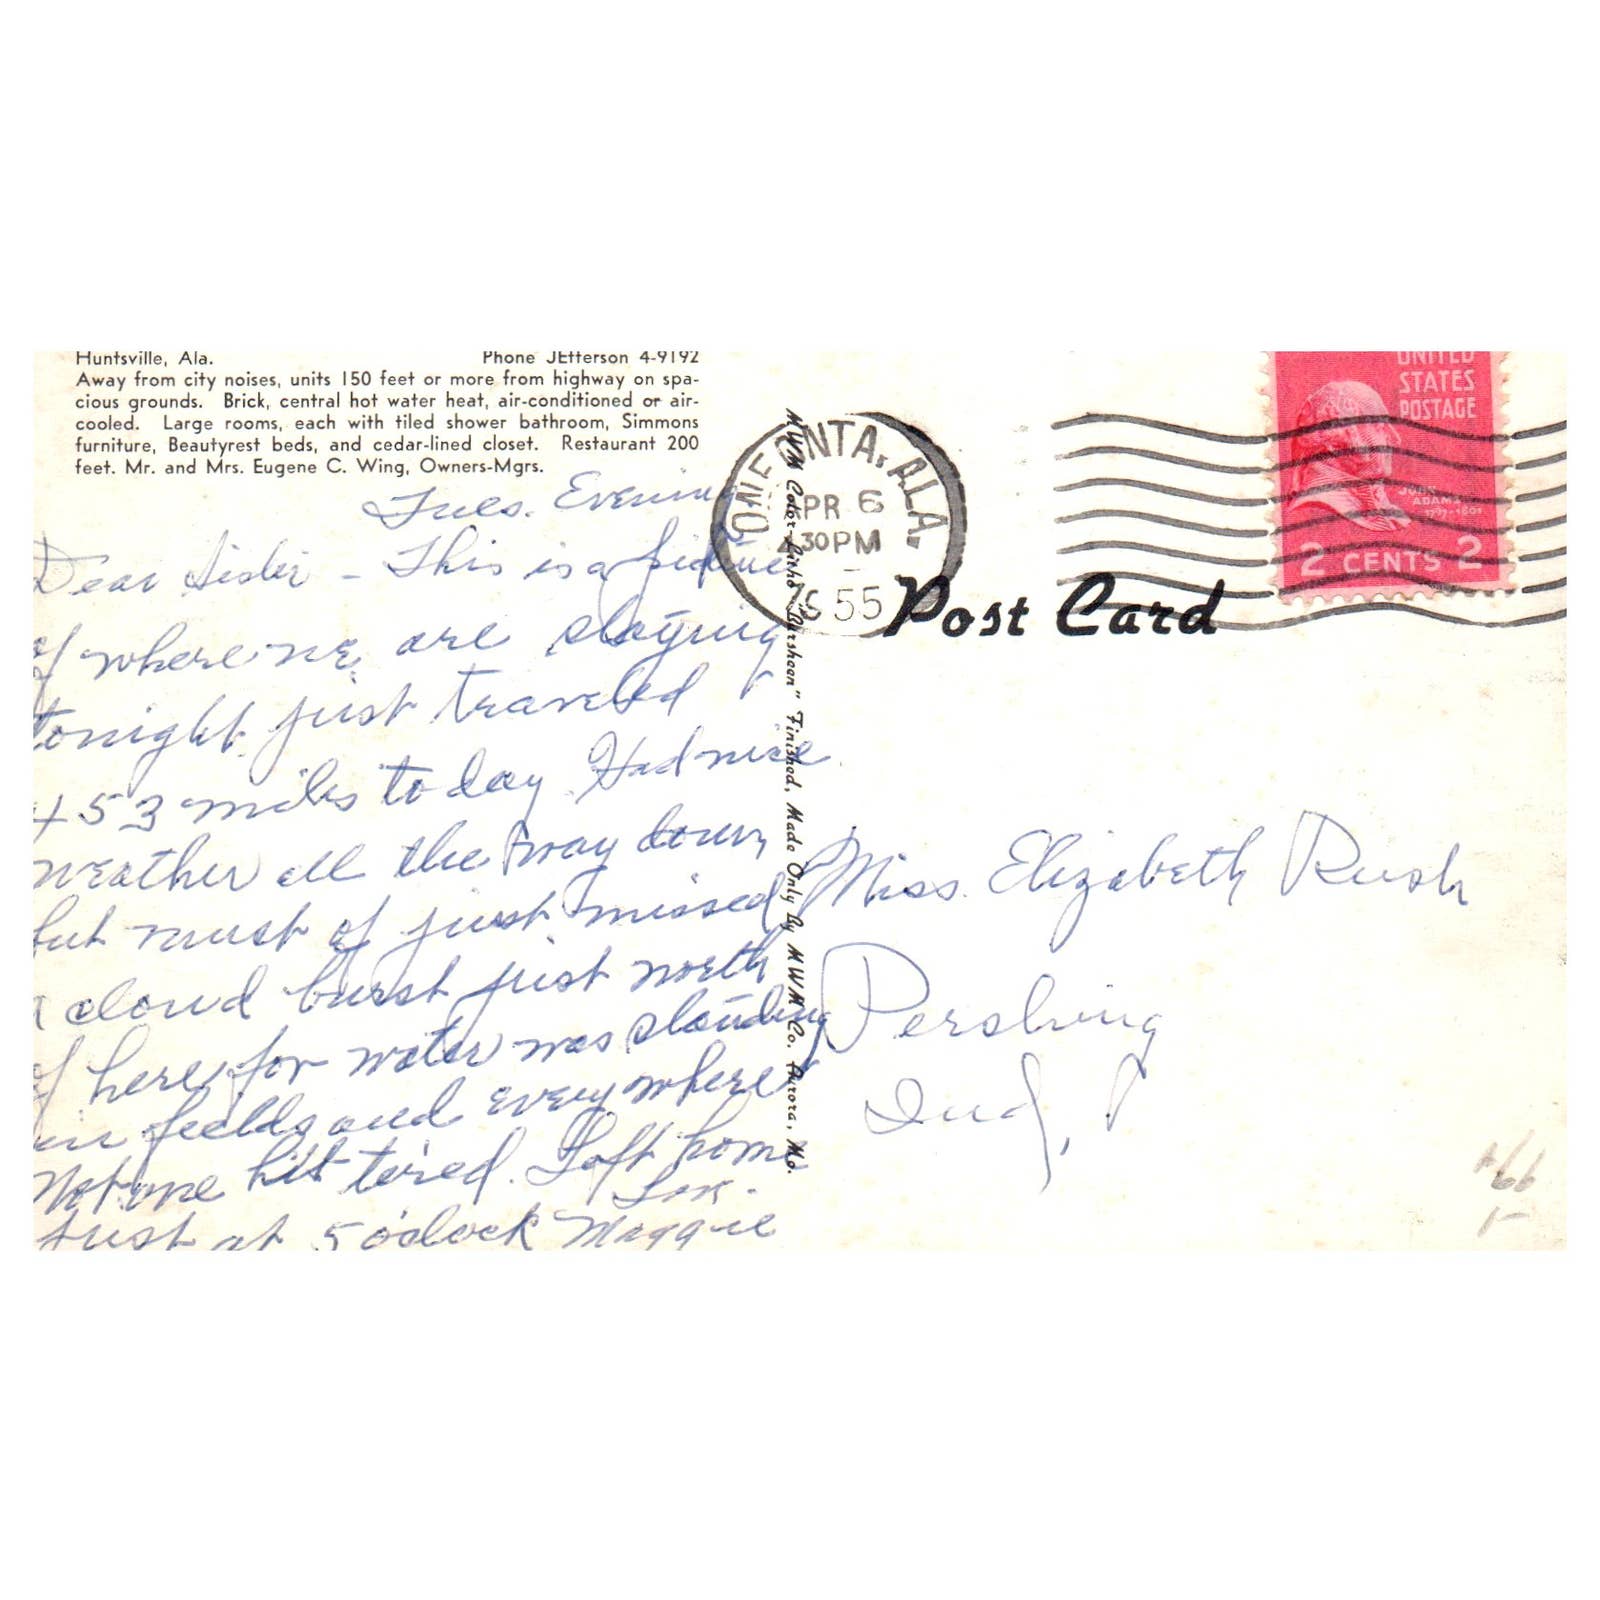 Huntsville, Ala. Phone JEfferson 4-9192
Away from city noises, units 150 feet or more from highway on spa-
cious grounds. Brick, central hot water heat, air-conditioned or air-
cooled. Large rooms, each with tiled shower bathroom, Simmons
furniture, Beautyrest beds, and cedar-lined closet. Restaurant 200
feet. Mr. and Mrs. Eugene C. Wing, Owners-Mgrs.
Tues. Evening
Dear Sister - This is a picture
of where we are staying
tonight just traveled
453 miles today. Had nice
weather all the way down
but must of just missed
a cloud burst just north
of here, for water was standing
in fields and everywhere
Not one bit tired. Left home
just at 5 o'clock Maggie
MWM Color-Litho "Dursheen" Finished, Made Only By MWM Co. Aurora, Mo.
ONEONTA, ALA.
APR 6
30 PM
1955
UNITED
STATES
POSTAGE
JOHN
ADAMS
1797-1801
2 CENTS 2
Post Card
Miss. Elizabeth Rush
Pershing
Ind,